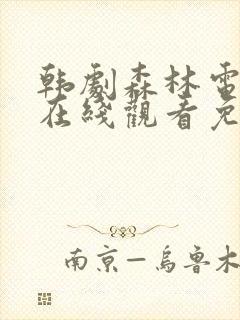 韩劇森林電
在綫觀看免
南京—烏鲁木